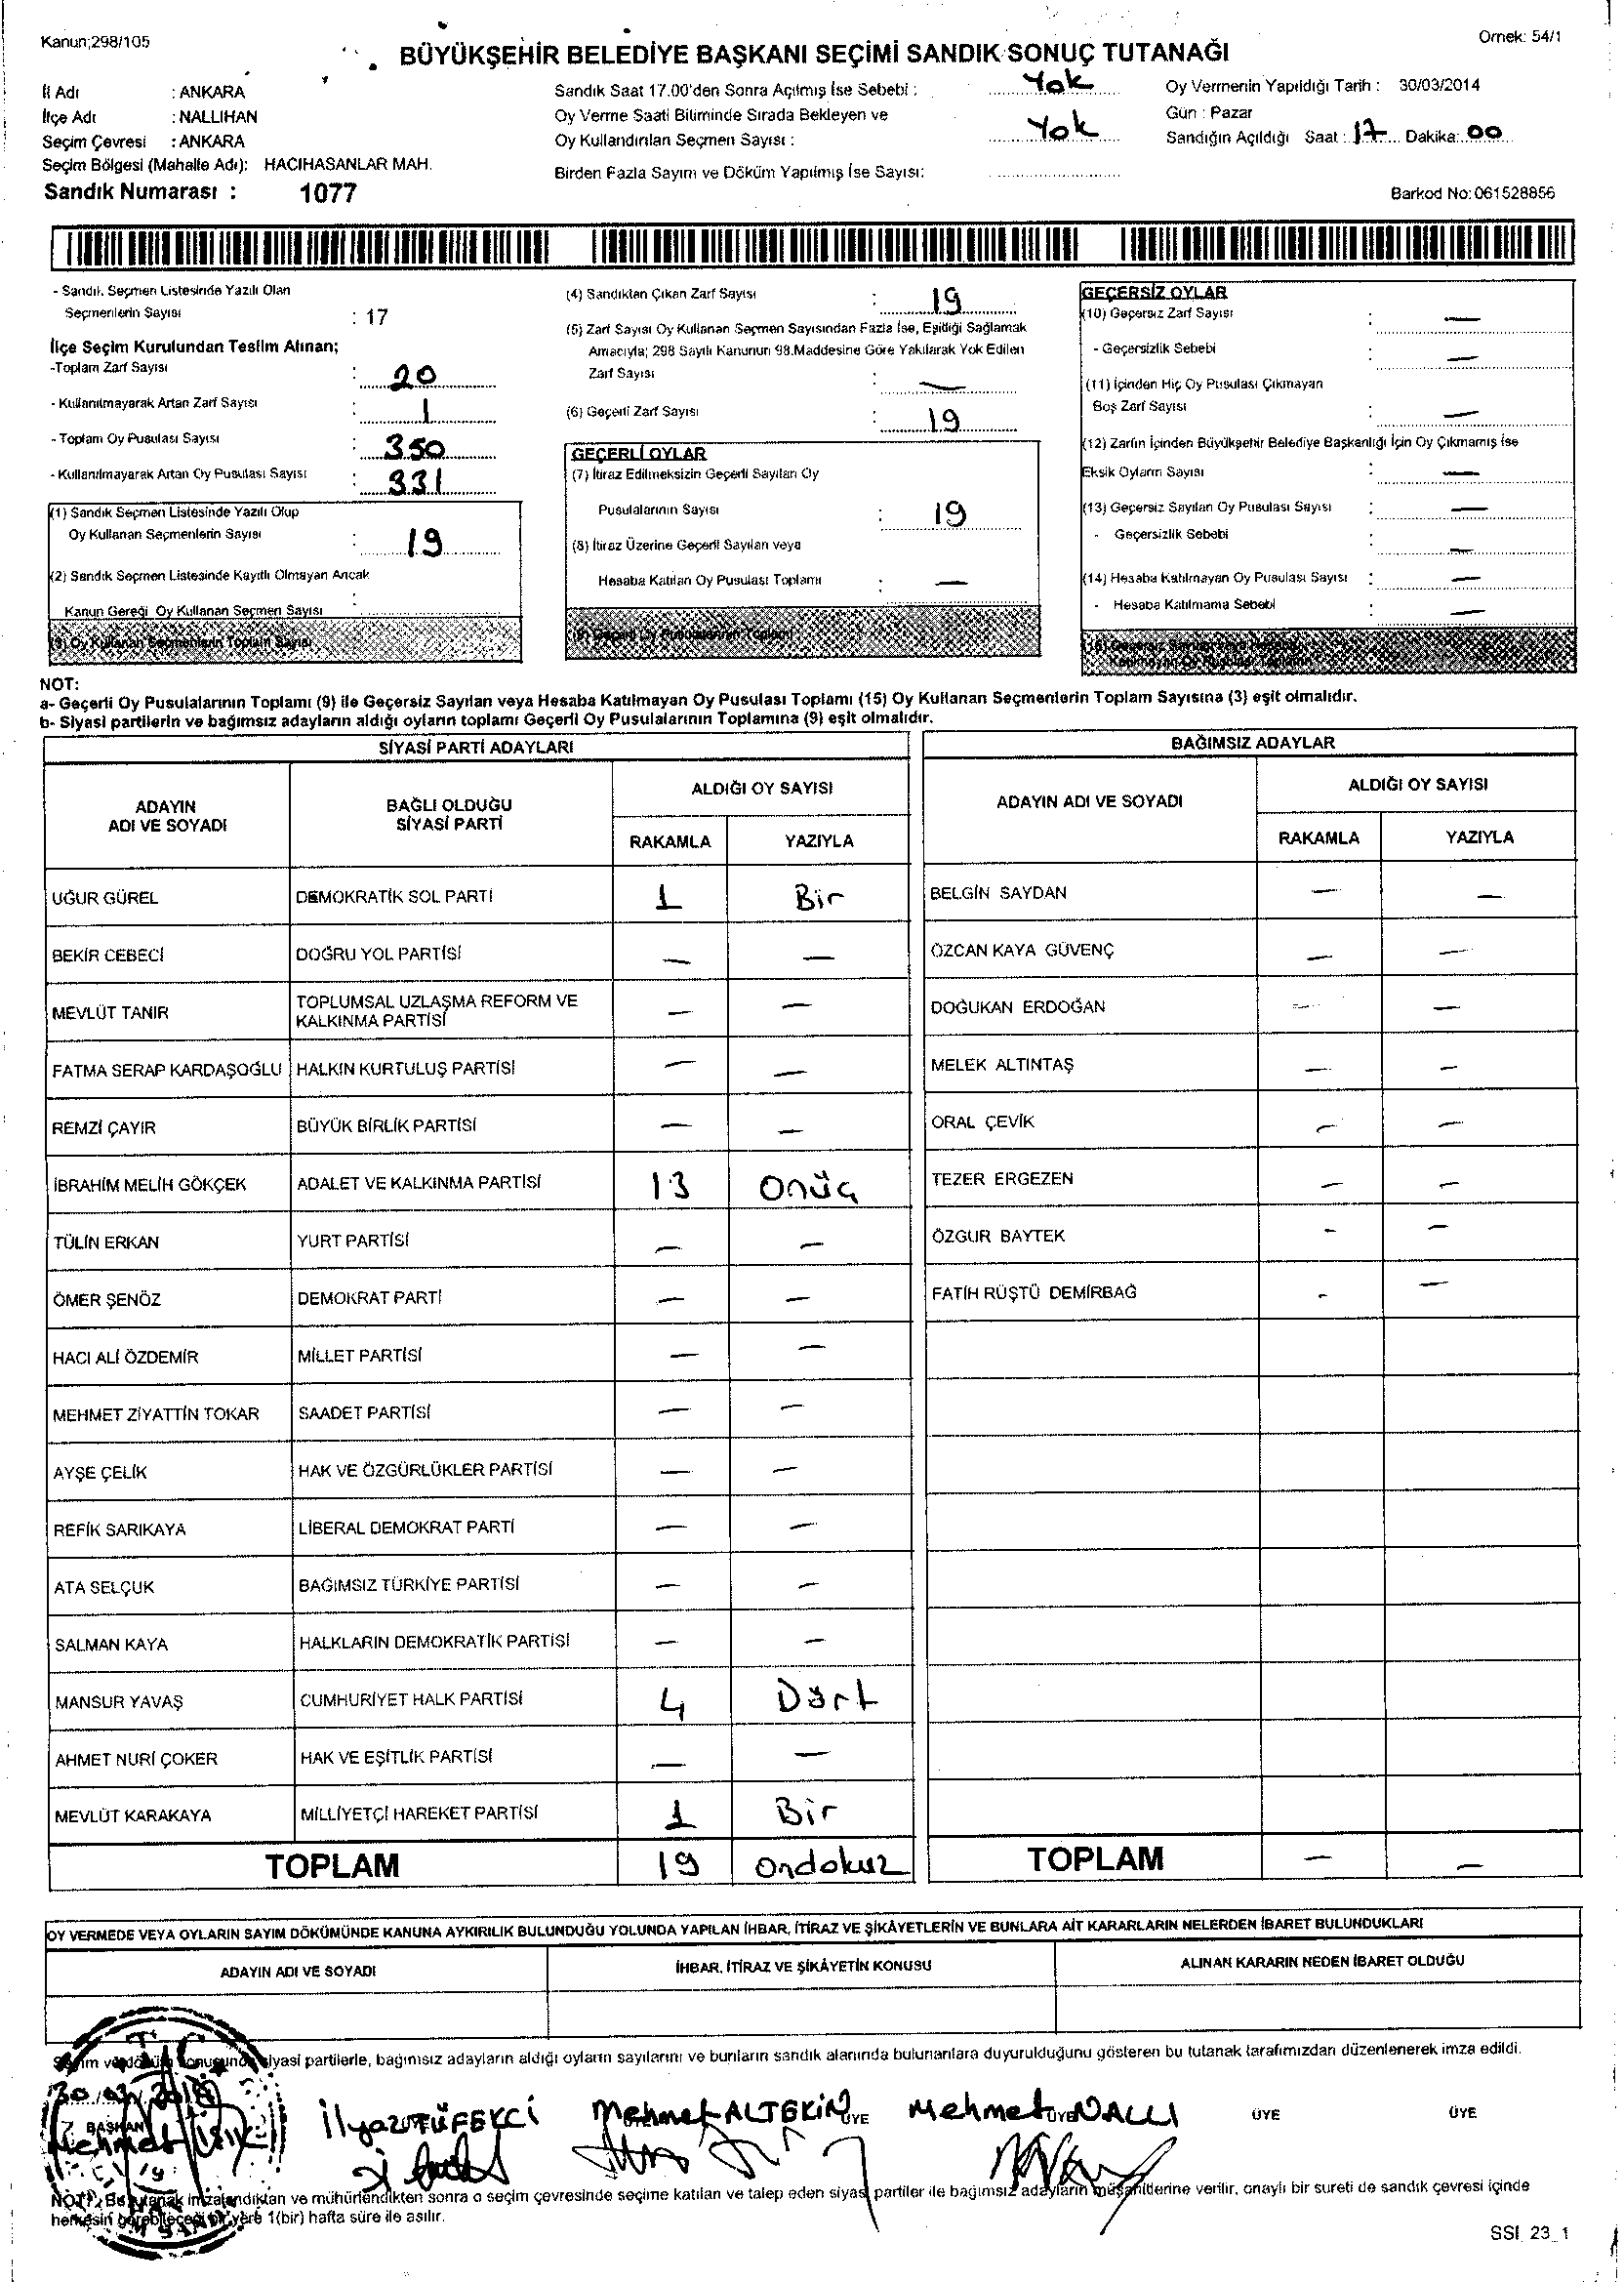 Kanun;298/105
Ornek: 54/1
BÜYÜKŞEHİR BELEDİYE BAŞKANI SEÇİMİ SANDIK SONUÇ TUTANAĞI
İl Adı : ANKARA
İlçe Adı : NALLIHAN
Seçim Çevresi : ANKARA
Seçim Bölgesi (Mahalle Adı): HACIHASANLAR MAH.
Sandık Numarası : 1077
Sandık Saat 17.00'den Sonra Açılmış İse Sebebi : Yok
Oy Verme Saati Bitiminde Sırada Bekleyen ve
Oy Kullandırılan Seçmen Sayısı : Yok
Birden Fazla Sayım ve Döküm Yapılmış İse Sayısı:
Oy Vermenin Yapıldığı Tarih : 30/03/2014
Gün : Pazar
Sandığın Açıldığı Saat : 17 Dakika: 00
Barkod No: 061528856
- Sandık Seçmen Listesinde Yazılı Olan
Seçmenlerin Sayısı : 17
İlçe Seçim Kurulundan Teslim Alınan;
-Toplam Zarf Sayısı : 20
- Kullanılmayarak Artan Zarf Sayısı : 1
- Toplam Oy Pusulası Sayısı : 350
- Kullanılmayarak Artan Oy Pusulası Sayısı : 331
(1) Sandık Seçmen Listesinde Yazılı Olup
Oy Kullanan Seçmenlerin Sayısı : 19
(2) Sandık Seçmen Listesinde Kayıtlı Olmayan Ancak
Kanun Gereği Oy Kullanan Seçmen Sayısı :
(3) Oy Kullanan Seçmenlerin Toplam Sayısı
(4) Sandıktan Çıkan Zarf Sayısı : 19
(5) Zarf Sayısı Oy Kullanan Seçmen Sayısından Fazla İse, Eşitliği Sağlamak
Amacıyla; 298 Sayılı Kanunun 98.Maddesine Göre Yakılarak Yok Edilen
Zarf Sayısı : —
(6) Geçerli Zarf Sayısı : 19
GEÇERLİ OYLAR
(7) İtiraz Edilmeksizin Geçerli Sayılan Oy
Pusulalarının Sayısı : 19
(8) İtiraz Üzerine Geçerli Sayılan veya
Hesaba Katılan Oy Pusulası Toplamı : —
(9) Geçerli Oy Pusulalarının Toplamı
GEÇERSİZ OYLAR
(10) Geçersiz Zarf Sayısı : —
- Geçersizlik Sebebi : —
(11) İçinden Hiç Oy Pusulası Çıkmayan
Boş Zarf Sayısı : —
(12) Zarfın İçinden Büyükşehir Belediye Başkanlığı İçin Oy Çıkmamış İse
Eksik Oyların Sayısı : —
(13) Geçersiz Sayılan Oy Pusulası Sayısı : —
- Geçersizlik Sebebi : —
(14) Hesaba Katılmayan Oy Pusulası Sayısı : —
- Hesaba Katılmama Sebebi : —
(15) Geçersiz Sayılan veya Hesaba
Katılmayan Oy Pusulası Toplamı
NOT:
a- Geçerli Oy Pusulalarının Toplamı (9) ile Geçersiz Sayılan veya Hesaba Katılmayan Oy Pusulası Toplamı (15) Oy Kullanan Seçmenlerin Toplam Sayısına (3) eşit olmalıdır.
b- Siyasi partilerin ve bağımsız adayların aldığı oyların toplamı Geçerli Oy Pusulalarının Toplamına (9) eşit olmalıdır.
SİYASİ PARTİ ADAYLARI
ADAYIN ADI VE SOYADI BAĞLI OLDUĞU SİYASİ PARTİ ALDIĞI OY SAYISI
RAKAMLA YAZIYLA
UĞUR GÜREL DEMOKRATİK SOL PARTİ 1 Bir
BEKİR CEBECİ DOĞRU YOL PARTİSİ — —
MEVLÜT TANIR TOPLUMSAL UZLAŞMA REFORM VE KALKINMA PARTİSİ — —
FATMA SERAP KARDAŞOĞLU HALKIN KURTULUŞ PARTİSİ — —
REMZİ ÇAYIR BÜYÜK BİRLİK PARTİSİ — —
İBRAHİM MELİH GÖKÇEK ADALET VE KALKINMA PARTİSİ 13 Onüç
TÜLİN ERKAN YURT PARTİSİ — —
ÖMER ŞENÖZ DEMOKRAT PARTİ — —
HACI ALİ ÖZDEMİR MİLLET PARTİSİ — —
MEHMET ZİYATTİN TOKAR SAADET PARTİSİ — —
AYŞE ÇELİK HAK VE ÖZGÜRLÜKLER PARTİSİ — —
REFİK SARIKAYA LİBERAL DEMOKRAT PARTİ — —
ATA SELÇUK BAĞIMSIZ TÜRKİYE PARTİSİ — —
SALMAN KAYA HALKLARIN DEMOKRATİK PARTİSİ — —
MANSUR YAVAŞ CUMHURİYET HALK PARTİSİ 4 Dört
AHMET NURİ ÇOKER HAK VE EŞİTLİK PARTİSİ — —
MEVLÜT KARAKAYA MİLLİYETÇİ HAREKET PARTİSİ 1 Bir
TOPLAM 19 Ondokuz
BAĞIMSIZ ADAYLAR
ADAYIN ADI VE SOYADI ALDIĞI OY SAYISI
RAKAMLA YAZIYLA
BELGİN SAYDAN — —
ÖZCAN KAYA GÜVENÇ — —
DOĞUKAN ERDOĞAN — —
MELEK ALTINTAŞ — —
ORAL ÇEVİK — —
TEZER ERGEZEN — —
ÖZGUR BAYTEK — —
FATİH RÜŞTÜ DEMİRBAĞ — —
TOPLAM — —
OY VERMEDE VEYA OYLARIN SAYIM DÖKÜMÜNDE KANUNA AYKIRILIK BULUNDUĞU YOLUNDA YAPILAN İHBAR, İTİRAZ VE ŞİKÂYETLERİN VE BUNLARA AİT KARARLARIN NELERDEN İBARET BULUNDUKLARI
ADAYIN ADI VE SOYADI İHBAR, İTİRAZ VE ŞİKÂYETİN KONUSU ALINAN KARARIN NEDEN İBARET OLDUĞU
Sayım ve döküm sonucunda siyasi partilerle, bağımsız adayların aldığı oyların sayılarını ve bunların sandık alanında bulunanlara duyurulduğunu gösteren bu tutanak tarafımızdan düzenlenerek imza edildi.
T.C.
30.03.2014
BAŞKAN
Mehmet
İlyaz TÜFEKCİ
Mehmet ALTEKİN ÜYE
Mehmet NALLI ÜYE
ÜYE
ÜYE
NOT: Bu tutanak imzalandıktan ve mühürlendikten sonra o seçim çevresinde seçime katılan ve talep eden siyasi partiler ile bağımsız adayların müşahitlerine verilir, onaylı bir sureti de sandık çevresi içinde
herkesin görebileceği bir yere 1(bir) hafta süre ile asılır.
SSI_23_1